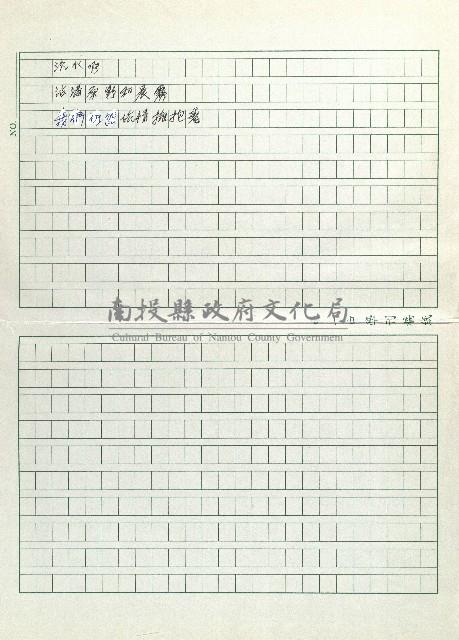 流水啊
沾滿原野和晨霧
我們仍然依情擁抱着
NO.
南投縣政府文化局
Cultural Bureau of Nantou County Government